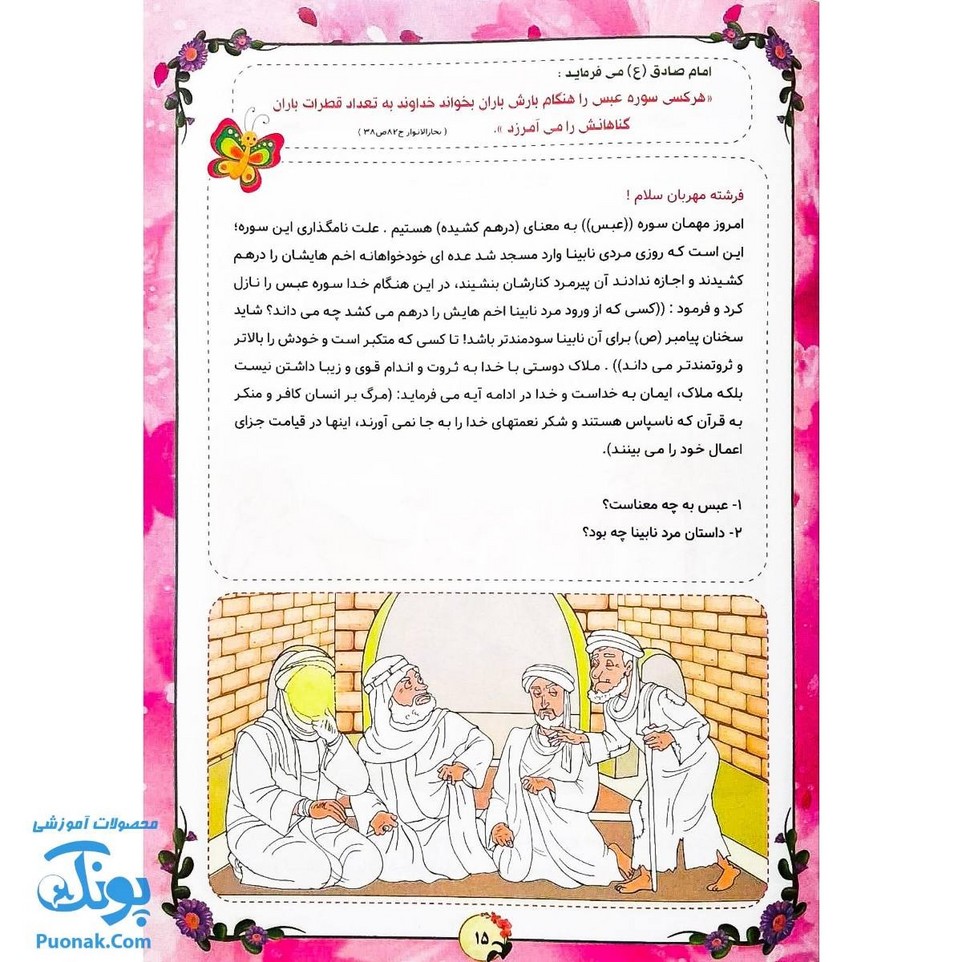 امام صادق (ع) می فرماید :
«هرکسی سوره عبس را هنگام بارش باران بخواند خداوند به تعداد قطرات باران
گناهانش را می آمرزد ». ( بحارالانوار ج۸۲ص۳۸ )
فرشته مهربان سلام !
امروز مهمان سوره ((عبس)) به معنای (درهم کشیده) هستیم . علت نامگذاری این سوره؛
این است که روزی مردی نابینا وارد مسجد شد عده ای خودخواهانه اخم هایشان را درهم
کشیدند و اجازه ندادند آن پیرمرد کنارشان بنشیند، در این هنگام خدا سوره عبس را نازل
کرد و فرمود : ((کسی که از ورود مرد نابینا اخم هایش را درهم می کشد چه می داند؟ شاید
سخنان پیامبر (ص) برای آن نابینا سودمندتر باشد! تا کسی که متکبر است و خودش را بالاتر
و ثروتمندتر می داند)) . ملاک دوستی با خدا به ثروت و اندام قوی و زیبا داشتن نیست
بلکه ملاک، ایمان به خداست و خدا در ادامه آیه می فرماید: (مرگ بر انسان کافر و منکر
به قرآن که ناسپاس هستند و شکر نعمتهای خدا را به جا نمی آورند، اینها در قیامت جزای
اعمال خود را می بینند).
۱- عبس به چه معناست؟
۲- داستان مرد نابینا چه بود؟
۱۵
محصولات آموزشی
پونک
Puonak.Com